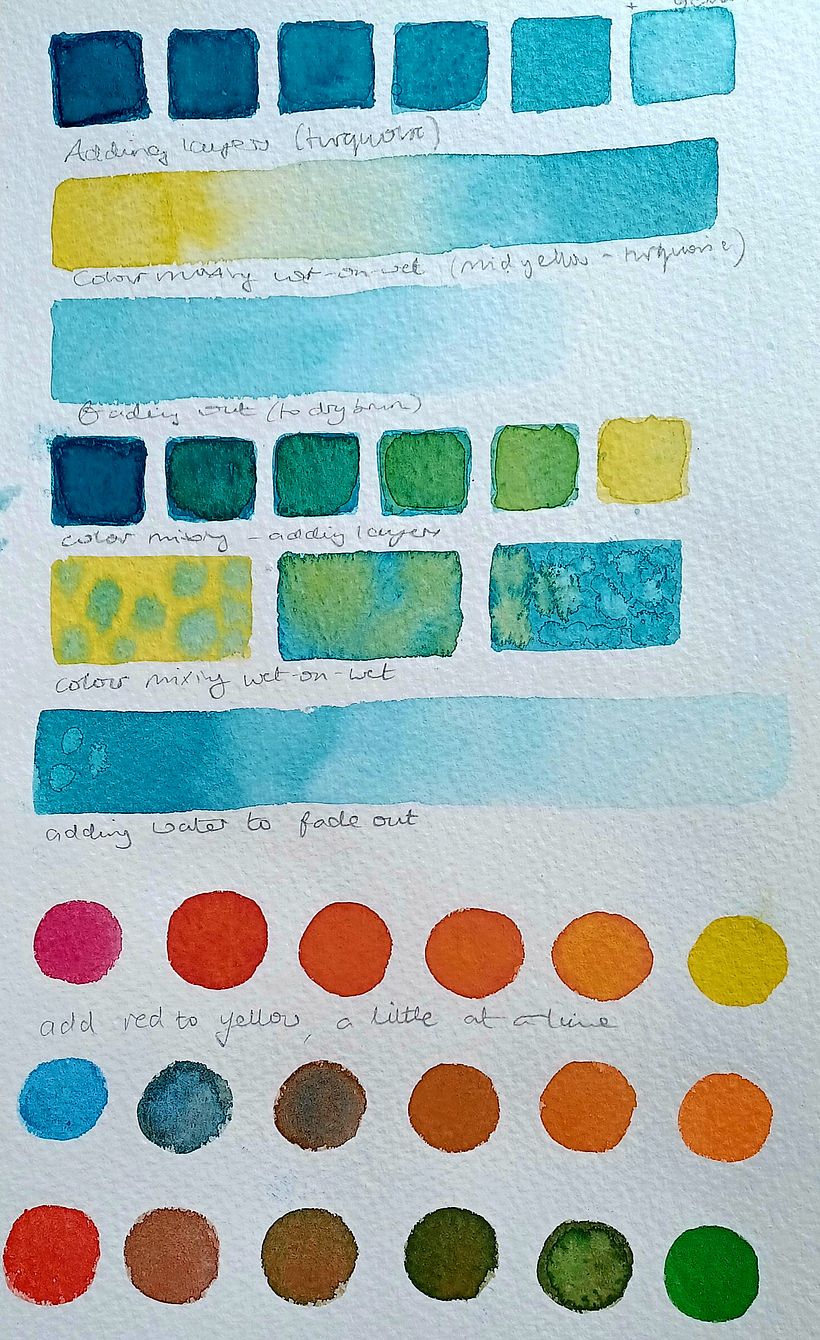 +
Adding layers (turquoise)
Colour mixing wet-on-wet (mid yellow - turquoise)
Fading out (to dry brush)
color mixing - adding layers
colour mixing wet-on-wet
adding water to fade out
add red to yellow, a little at a time